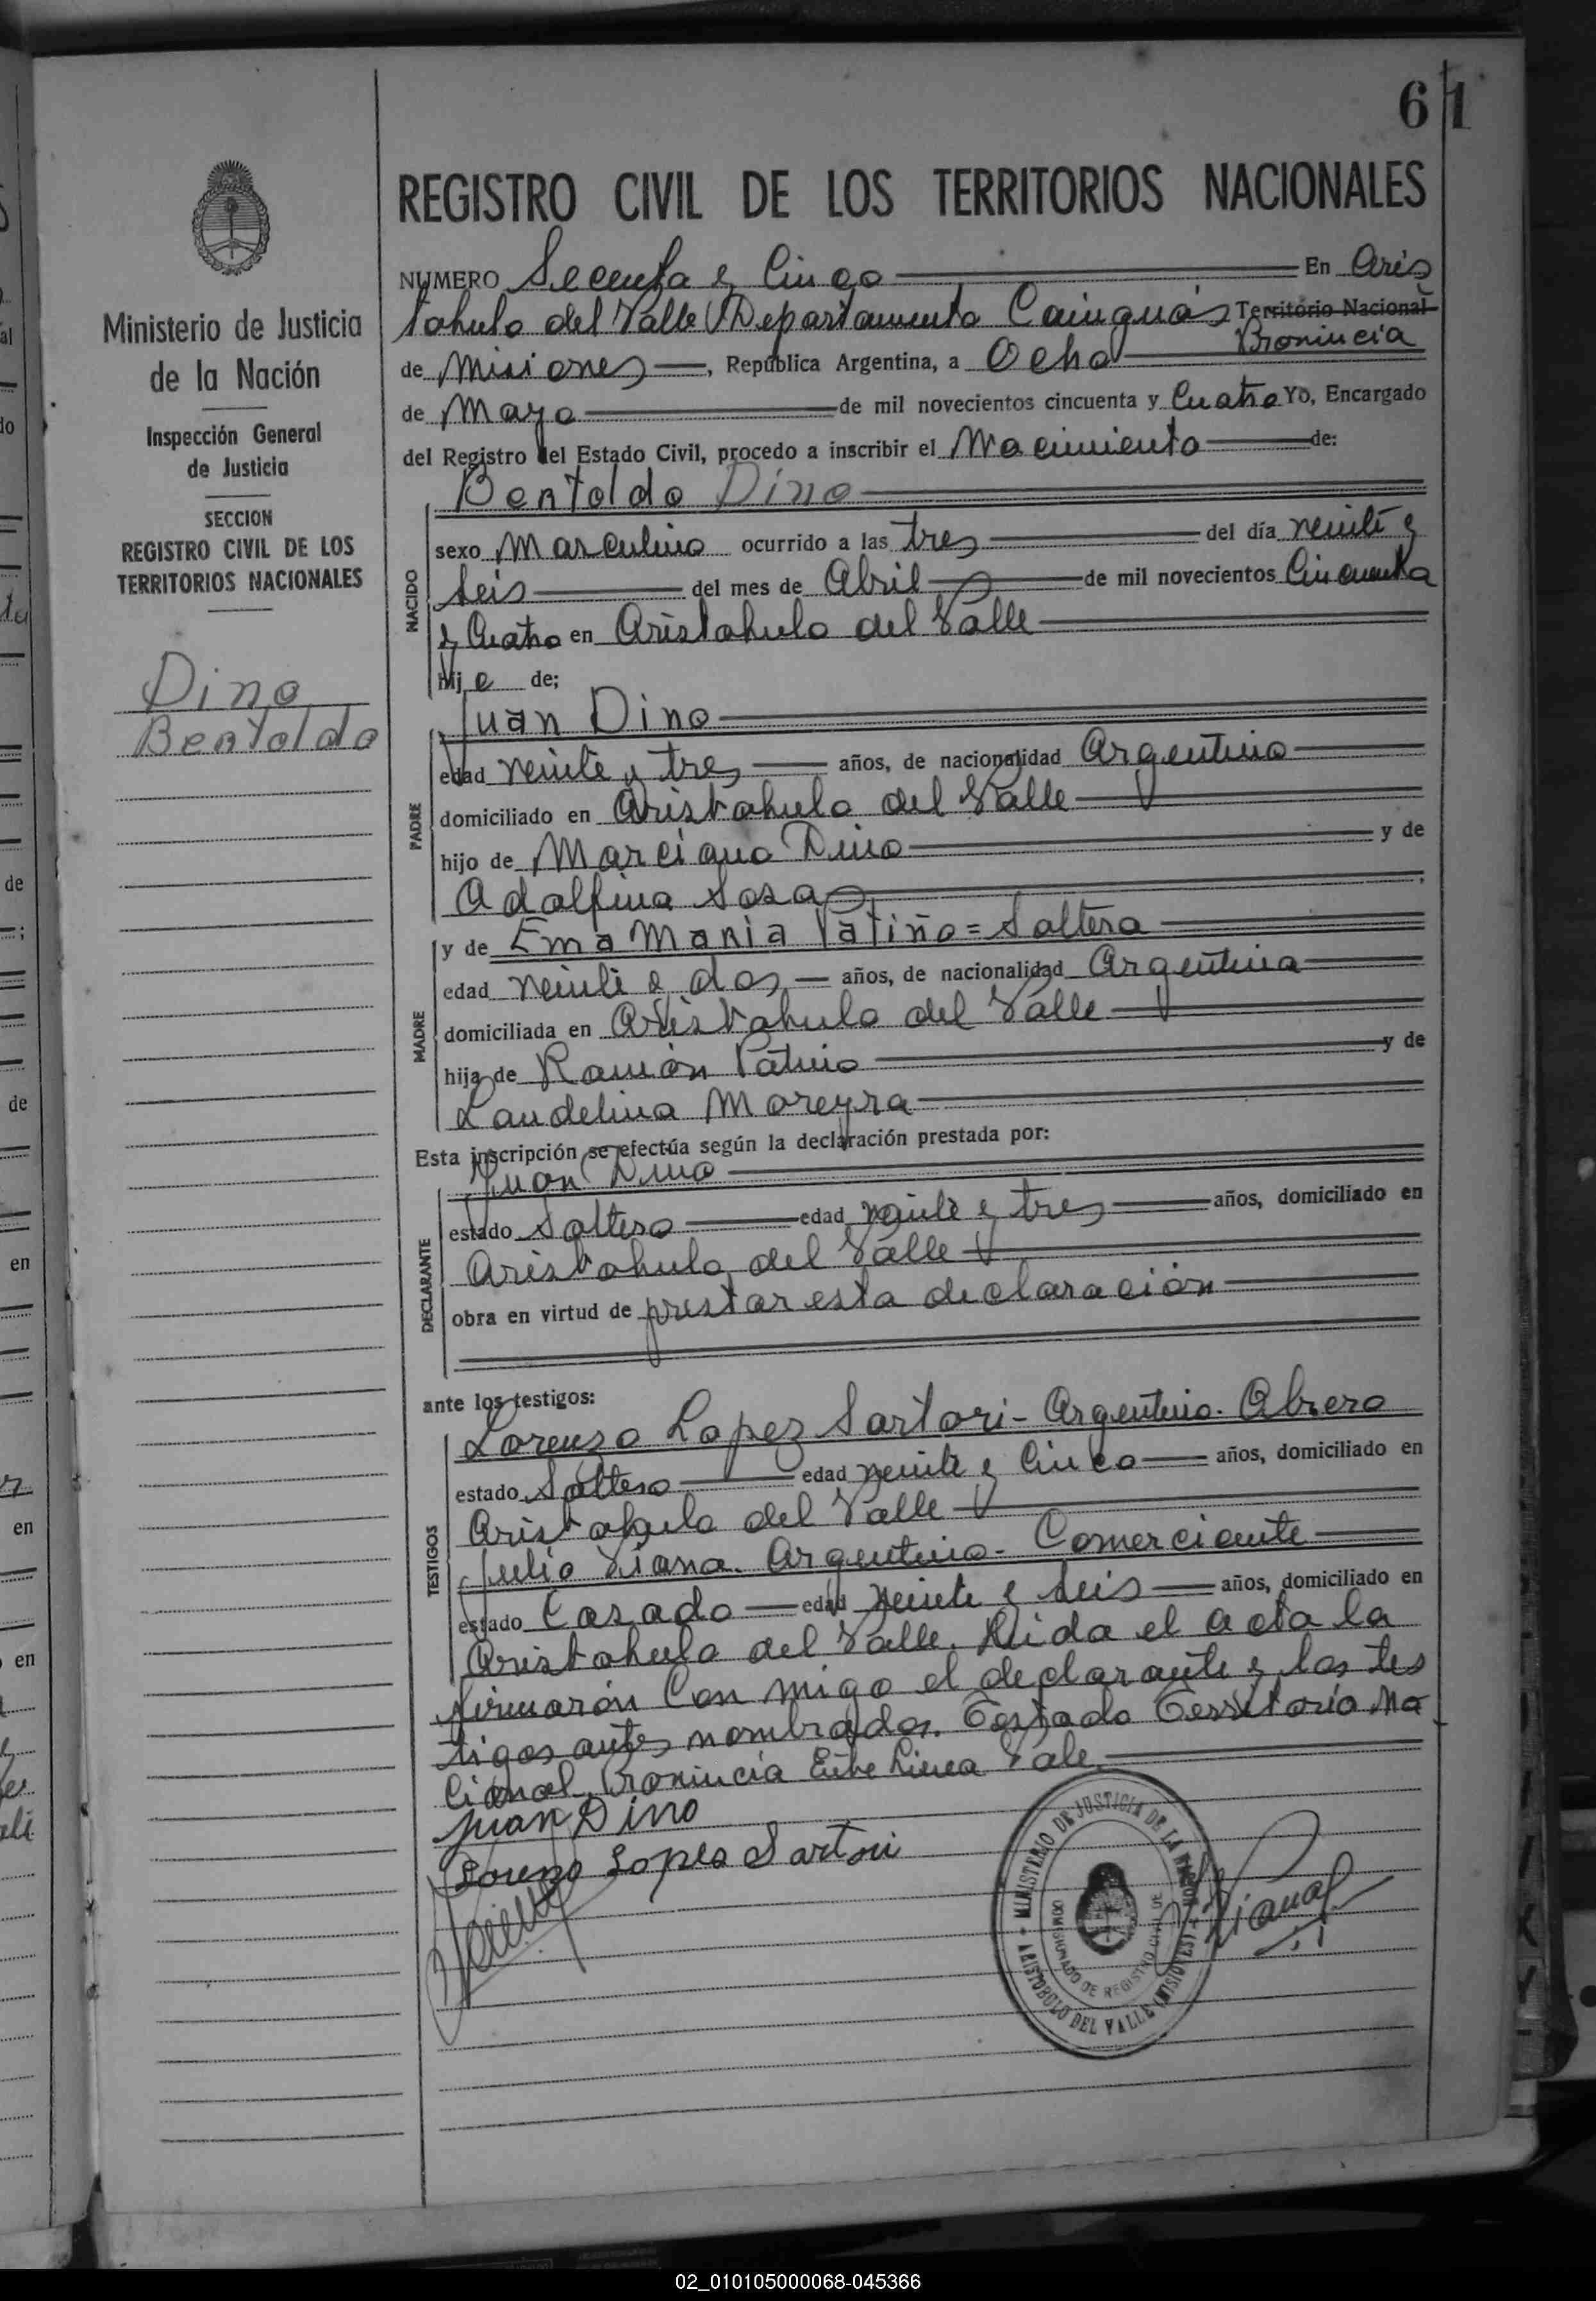 61
REGISTRO CIVIL DE LOS TERRITORIOS NACIONALES
Ministerio de Justicia
de la Nación
Inspección General
de Justicia
SECCION
REGISTRO CIVIL DE LOS
TERRITORIOS NACIONALES
Dino
Bertoldo
NUMERO Secenta y Cinco En Aris
tobulo del Valle Departamento Cainguás Territorio Nacional
Provincia
de Misiones, República Argentina, a Ocho
de Mayo de mil novecientos cincuenta y Cuatro Yo, Encargado
del Registro del Estado Civil, procedo a inscribir el Nacimiento de:
Bertoldo Dino
NACIDO
sexo Masculino ocurrido a las tres del día veinte y
seis del mes de Abril de mil novecientos Cincuenta
y Cuatro en Aristobulo del Valle
hijo de;
PADRE
Juan Dino
edad veinte y tres años, de nacionalidad Argentino
domiciliado en Aristobulo del Valle
hijo de Marciano Dino y de
Adolfina Sosa;
MADRE
y de Ema Maria Patiño = Soltera
edad veinte y dos años, de nacionalidad Argentina
domiciliada en Aristobulo del Valle
hija de Ramón Patiño y de
Laudelina Moreyra
Esta inscripción se efectúa según la declaración prestada por:
DECLARANTE
Juan Dino
estado Soltero edad veinte y tres años, domiciliado en
Aristobulo del Valle
obra en virtud de prestar esta declaración
ante los testigos:
TESTIGOS
Lorenzo Lopez Sartori - Argentino - Obrero
estado Soltero edad veinte y Cinco años, domiciliado en
Aristobulo del Valle
Julio Viana. Argentino - Comerciante
estado Casado edad veinte y seis años, domiciliado en
Aristobulo del Valle. Leida el acta la
firmarón Con migo el declarante y los tes
tigos antes nombrados. Testado Territorio Na
cional Provincia Entre Linea Vale.
Juan Dino
Lorenzo Lopes Sartori
MINISTERIO DE JUSTICIA DE LA NACION
COMISIONADO DE REGISTRO CIVIL DE
ARISTOBULO DEL VALLE (MISIONES)
02_010105000068-045366